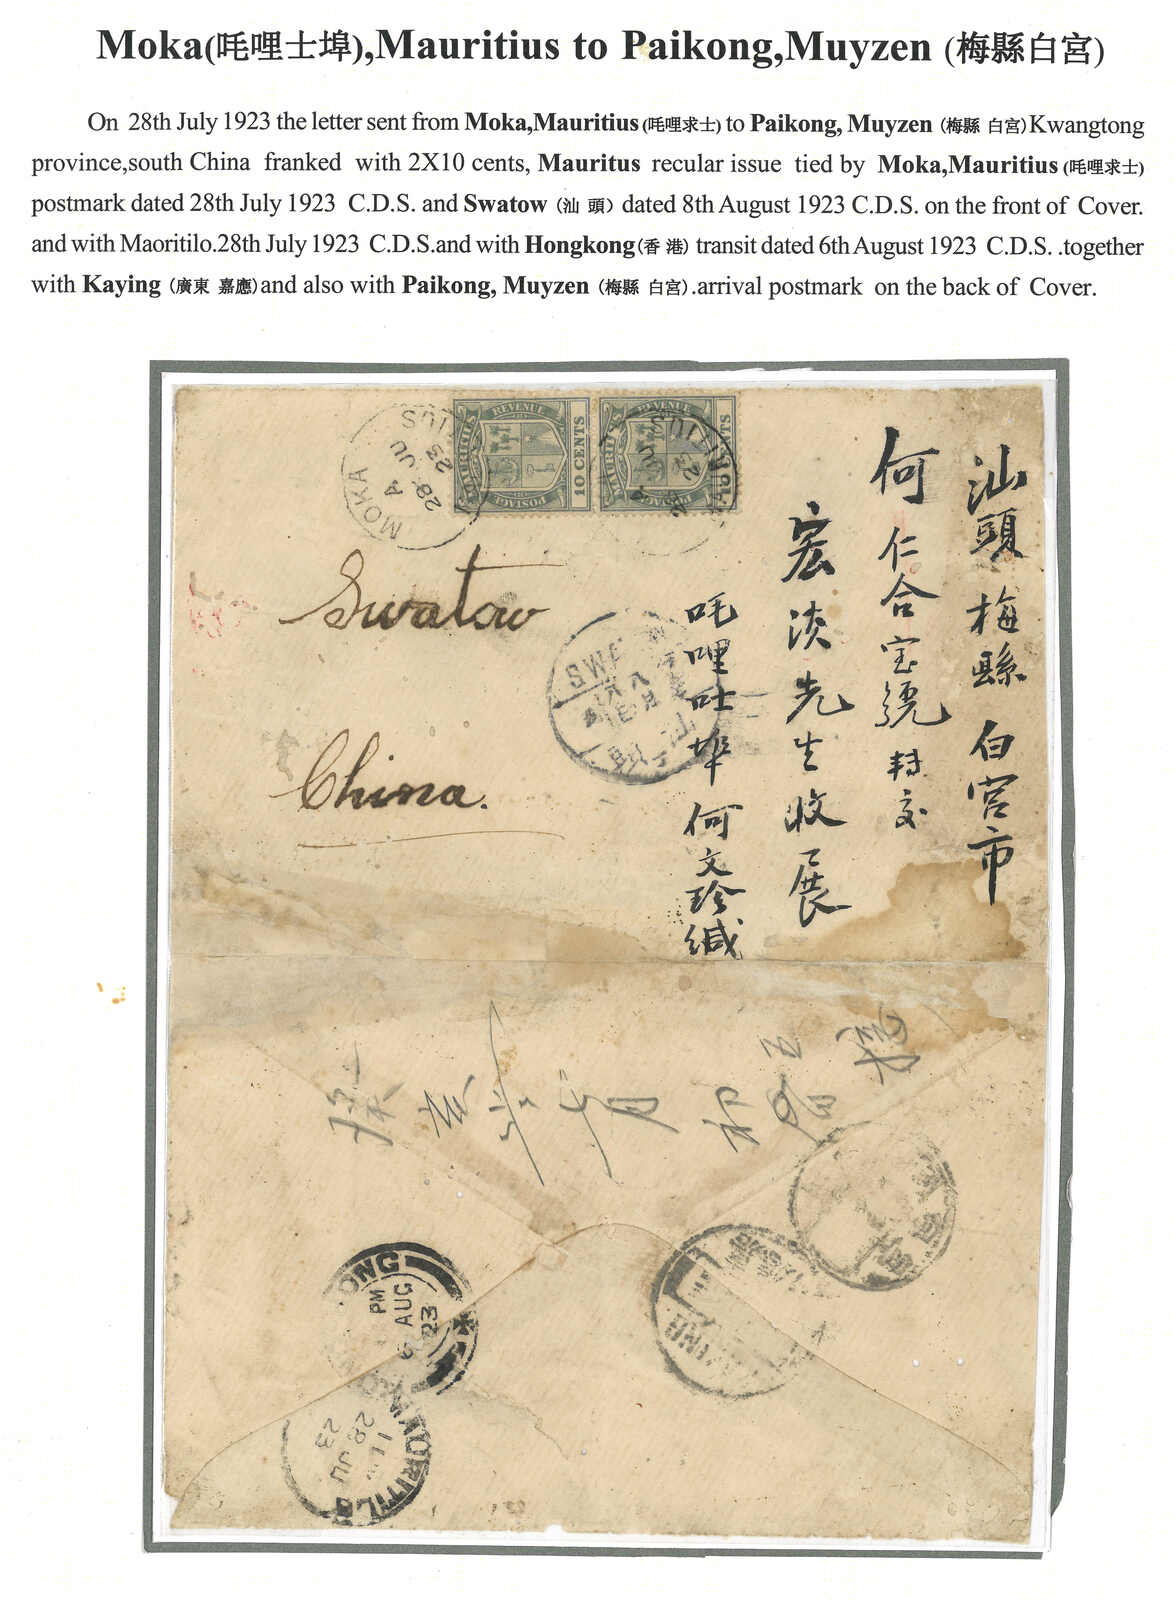 Moka(吒哩士埠),Mauritius to Paikong,Muyzen (梅縣白宮)
On 28th July 1923 the letter sent from Moka,Mauritius (吒哩求士) to Paikong, Muyzen (梅縣 白宮)Kwangtong
province,south China franked with 2X10 cents, Mauritus recular issue tied by Moka,Mauritius (吒哩求士)
postmark dated 28th July 1923 C.D.S. and Swatow (汕 頭) dated 8th August 1923 C.D.S. on the front of Cover.
and with Maoritilo.28th July 1923 C.D.S.and with Hongkong(香 港) transit dated 6th August 1923 C.D.S. .together
with Kaying (廣東 嘉應)and also with Paikong, Muyzen (梅縣 白宮).arrival postmark on the back of Cover.
MOKA
A
28 JU
23
MAURITIUS
REVENUE
POSTAGE
10 CENTS
MAURITIUS
REVENUE
POSTAGE
CENTS
汕頭梅縣白宮市
何仁合宝號封交
宏淡先生收展
吒哩吐埠何文珍緘
Swatow
China.
SWA
ONG
PM
6 AUG
23
MAORITILO
28 JU
23